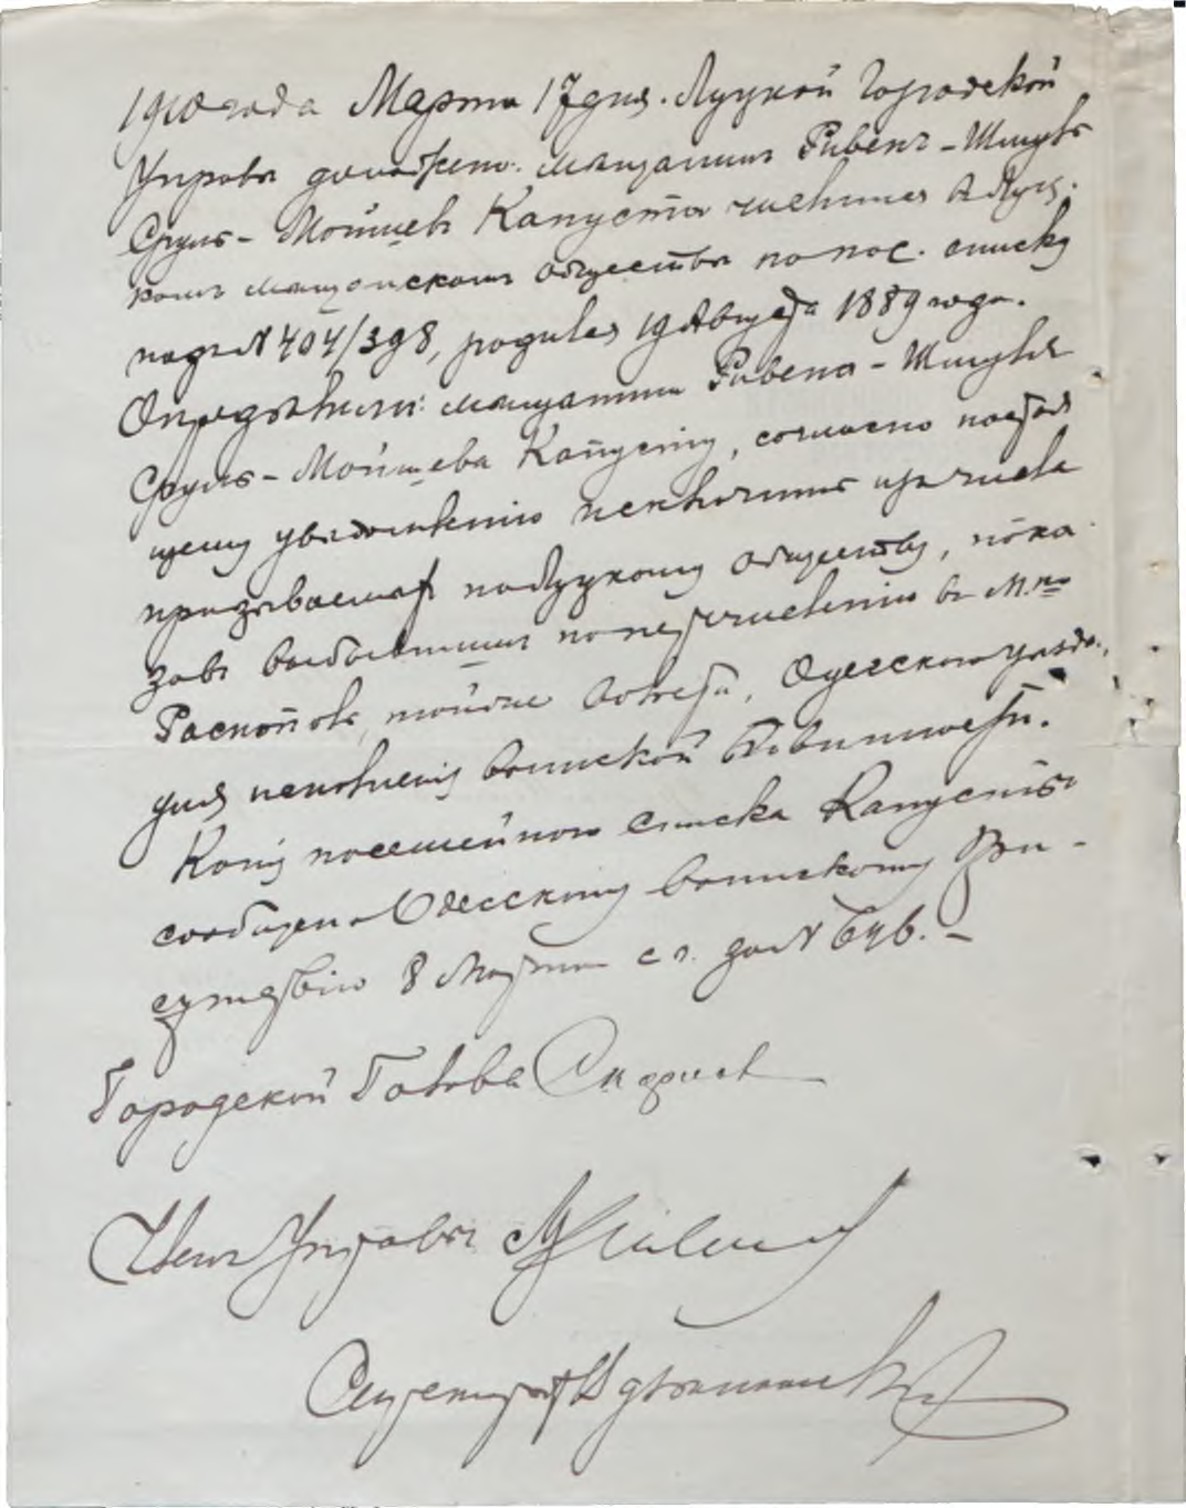 1910 года Марта 17 дня. Луцкой Городской
Управе доложено: мещанинъ Ривенъ-Шмуль
Сруль-Мойшевъ Капуста числится въ Луц-
комъ мещанскомъ обществе по пос. списку
подъ N 404/398, родился 19 Августа 1889 года.
Определили: мещанина Ривена-Шмуля
Сруль-Мойшева Капусту, согласно
уведомленію исключить изъ числа
призываемыхъ по Луцкому обществу, пока-
завъ выбывшимъ по перечисленію въ м-ко
той же волости, Одесскаго уезда,
для исполненія воинской повинности.
Копія посемейнаго списка Капусты
сообщена Одесскому воинскому При-
сутствію 8 Марта с.г. за N 646.-
Городской Голова
Членъ Управы
Секретарь